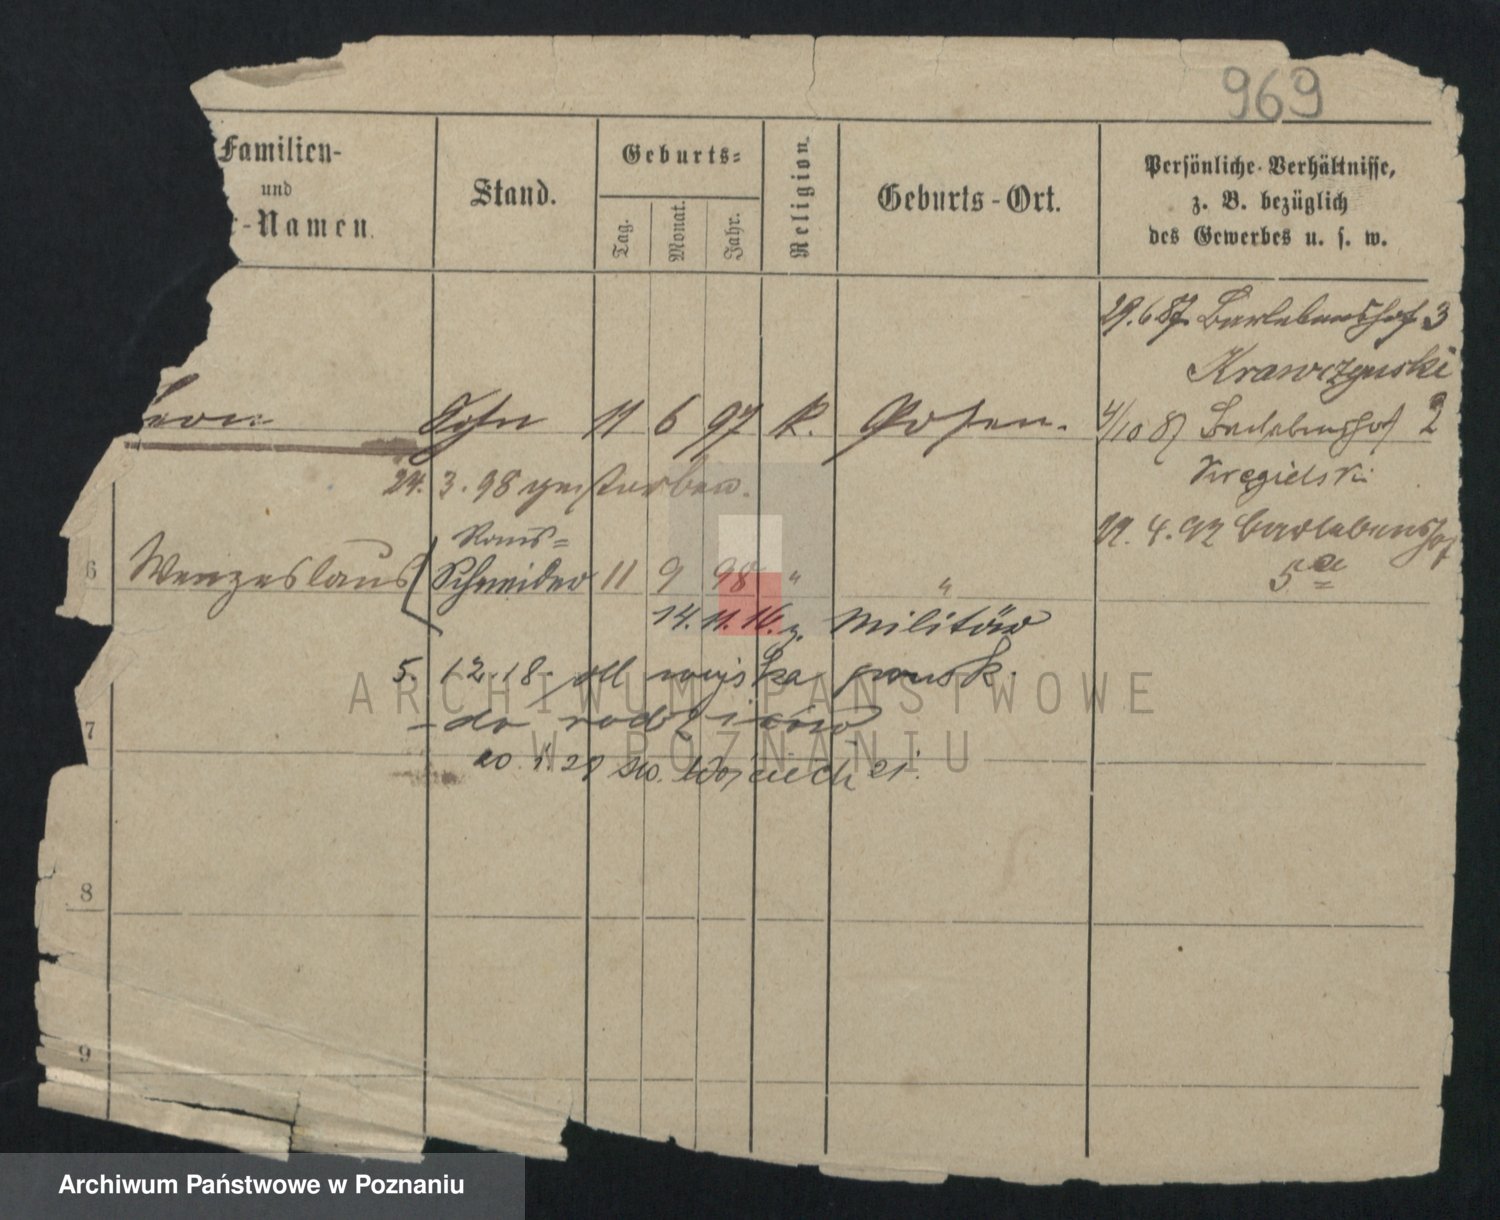 969
Familien-
und
r-Namen.
Stand.
Geburts-
Tag.
Monat.
Jahr.
Religion.
Geburts-Ort.
Persönliche Verhältnisse,
z. B. bezüglich
des Gewerbes u. s. w.
29.6.87. Barlebenshof 3
Krawczynski
Leon Sohn 11 6 97 k. Posen.
4/10 87 Barlebenshof 2
24.3.98 gestorben.
Kregielski
22.4.92 Barlebenshof
5a
6 Wenzeslaus Schneider 11 9 98 " "
14.11.16. z. Militär
5. 12.18. od wojska prusk.
7 - do rodziców
20.1.21 św. Wojciech 21.
8
9
ARCHIWUM PAŃSTWOWE
W POZNANIU
Archiwum Państwowe w Poznaniu